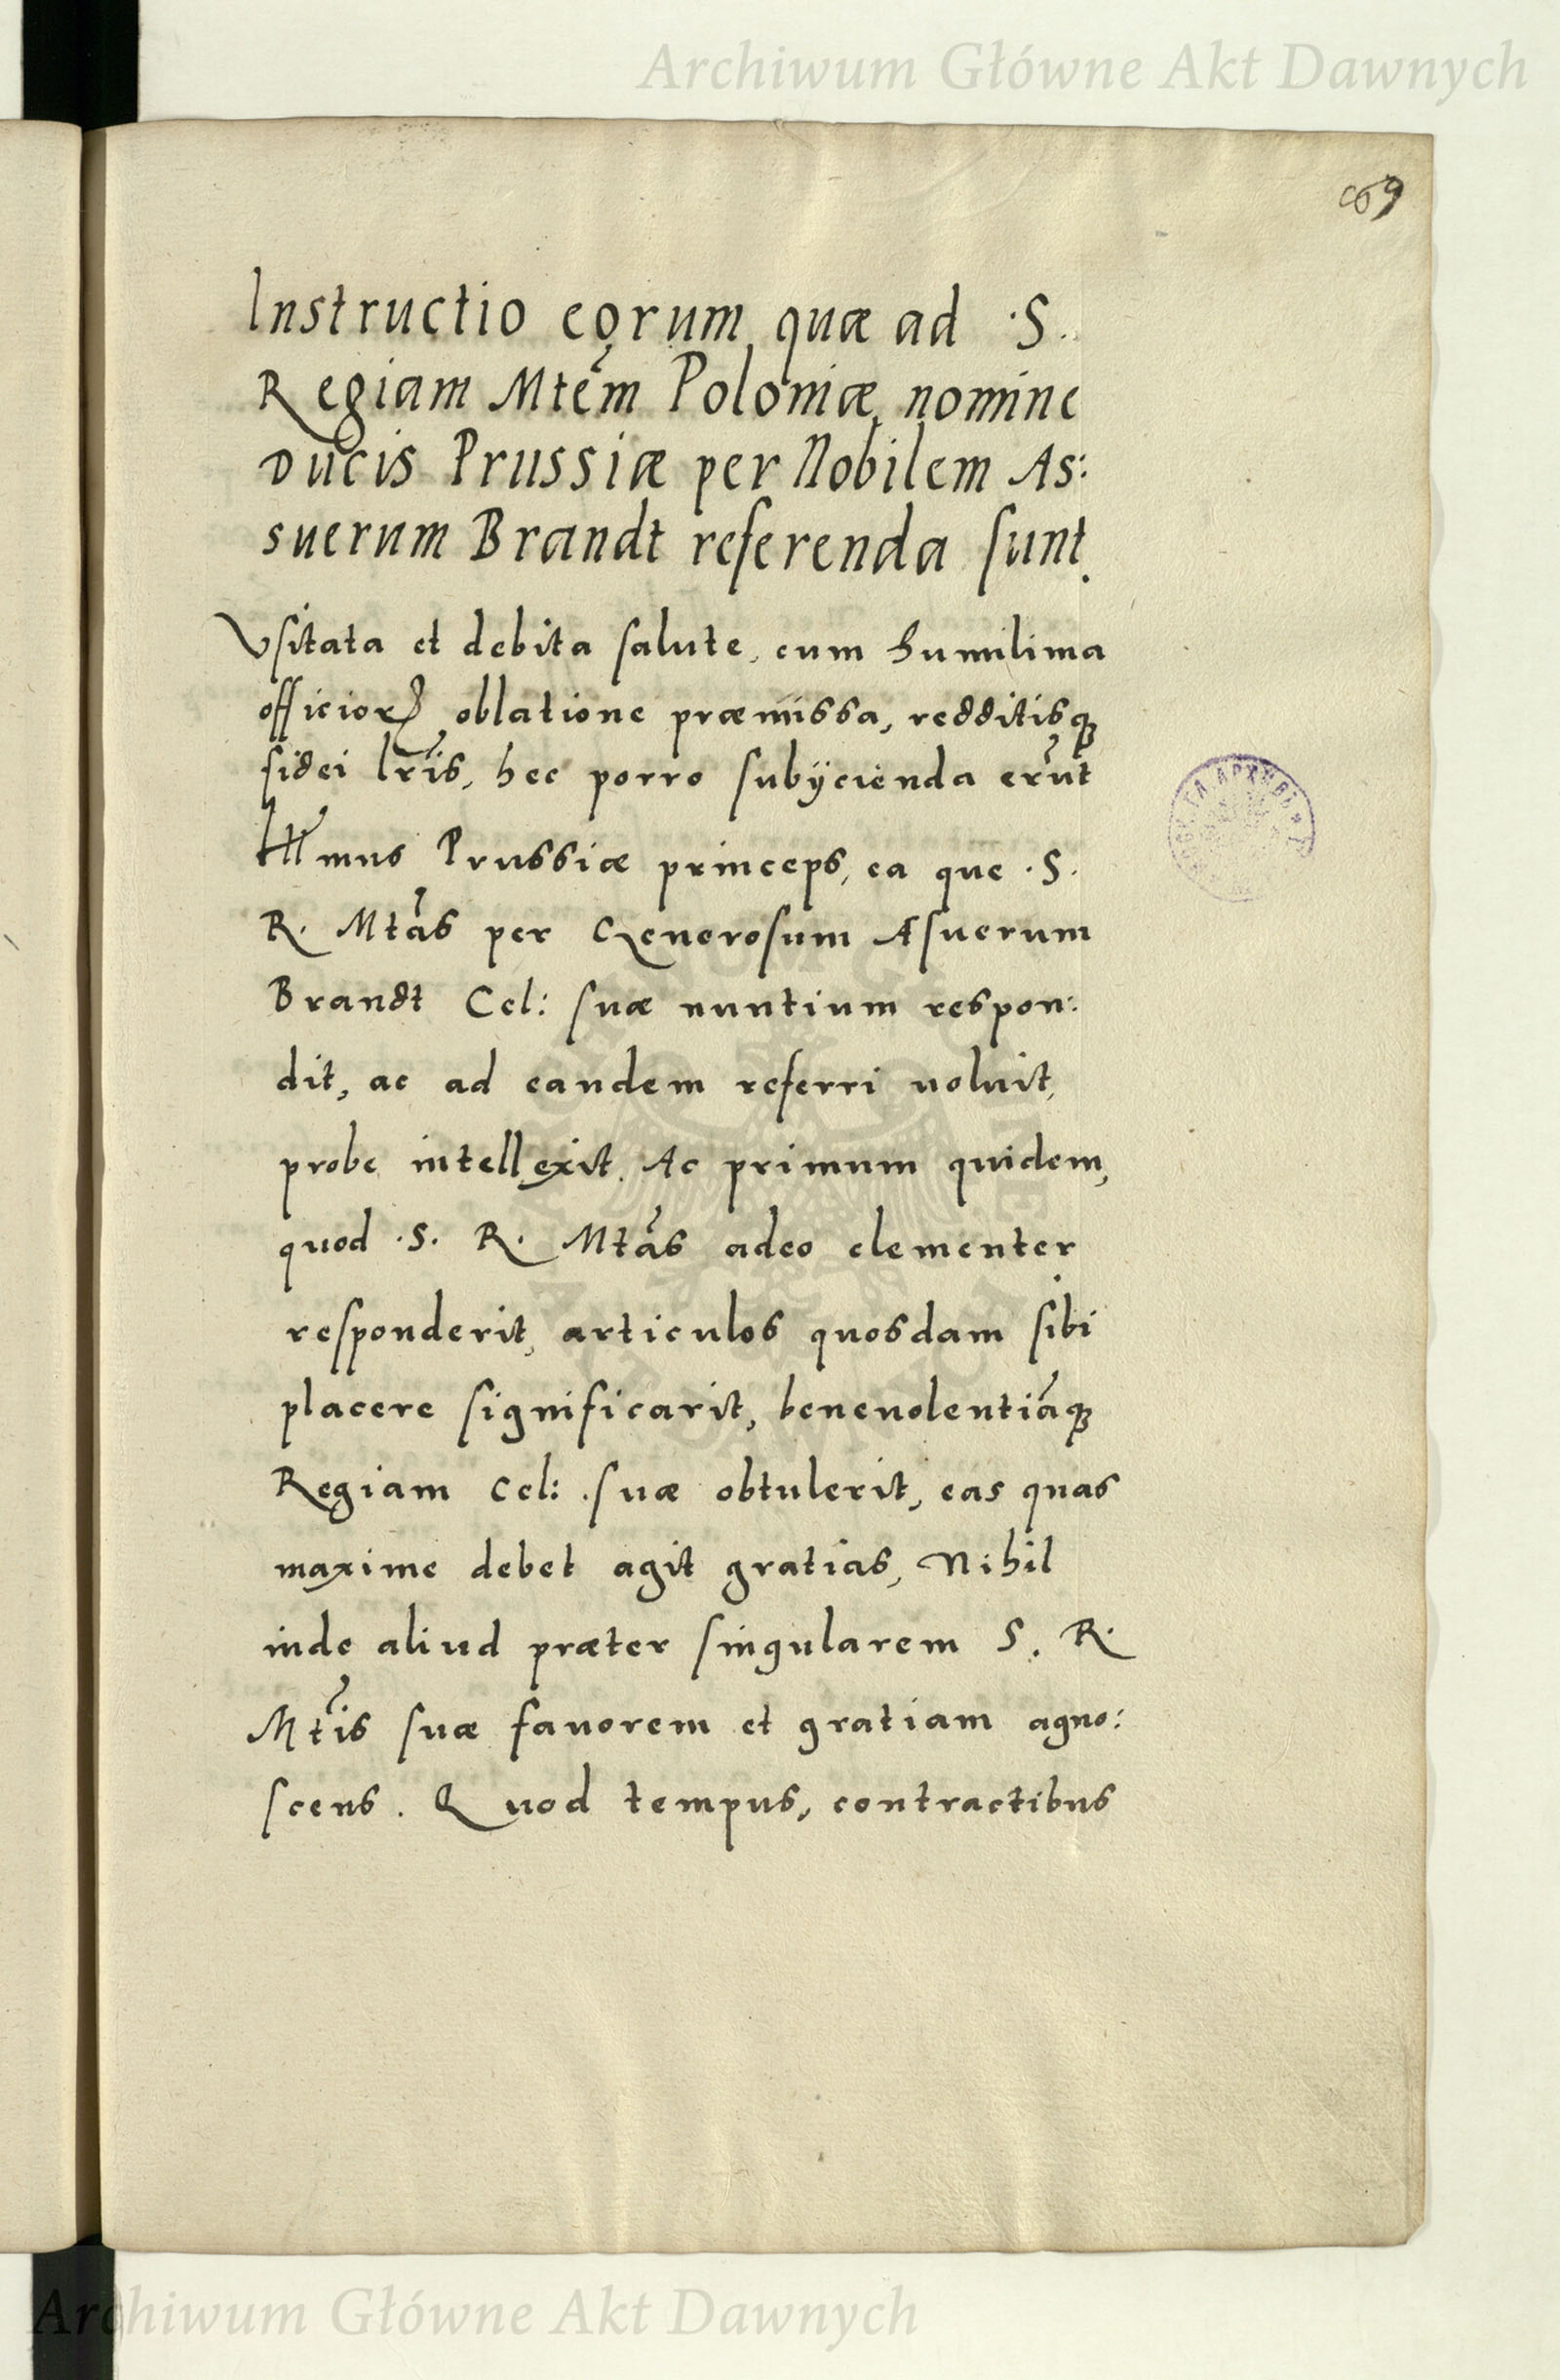 Archiwum Główne Akt Dawnych
69
Instructio eorum quæ ad ·S.
Regiam Mtẽm Poloniæ nomine
Ducis Prussiæ per Nobilem As:
suerum Brandt referenda sunt.
Vsitata et debita salute, cum humilima
officioꝝ oblatione præmissa, redditisqꝫ
fidei lr̃is, hec porro subijcienda erũt
Illmus Prussiæ princeps, ea que ·S.
R. Mtãs per Generosum Asuerum
Brandt Cel: suæ nuntium respon:
dit, ac ad eandem referri uoluit,
probe intellexit. Ac primum quidem,
quod ·S. R. Mtãs adeo clementer
responderit, articulos quosdam sibi
placere significarit, beneuolentiãqꝫ
Regiam Cel: suæ obtulerit, eas quas
maxime debet agit gratias, Nihil
inde aliud præter singularem S. R.
Mtĩs suæ fauorem et gratiam agno:
scens. Quod tempus, contractibus
Archiwum Główne Akt Dawnych